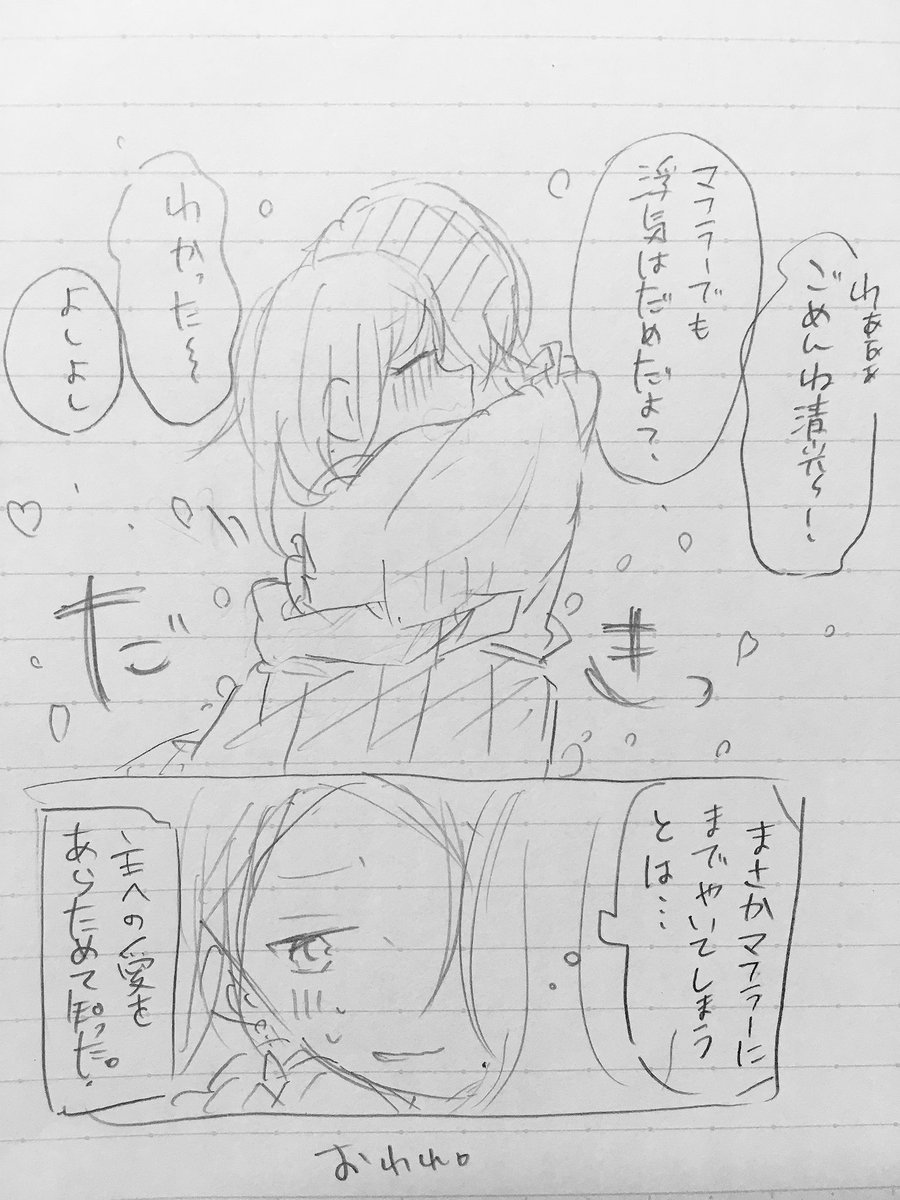 わぁぁぁ
ごめんね清光〜!
マフラーでも
浮気はだめだよ?
わかった〜
よしよし
だきっ
まさかマフラーに
までやいてしまう
とは…
主への愛を
あらためて
おわれ。